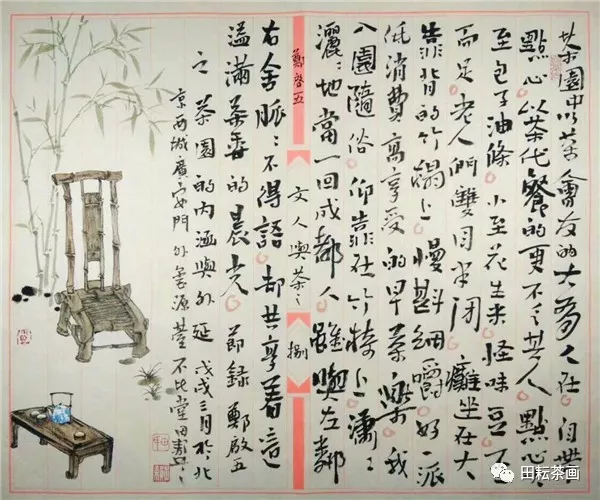 茶園中以茶會友的大有人在 自帶
點心以茶代餐的更不乏其人 點心大
至包子油條 小至花生米怪味豆 不一
而足 老人們雙目半閉 癱坐在大
靠背的竹椅上 慢斟細嚼 好一派
低消費高享受的早茶樂 我
入園隨俗 仰靠在竹椅上 瀟〻
灑〻地當一回成都人 雖與左鄰
鄭啓五
文人與茶之
捌
右舍脈〻不得語 却共享着這
溢滿茶香的晨光 節録鄭啟五
之 茶園的内涵與外延 戊戌三月於北
京西城廣安門外 源 不比堂田
田耘茶画